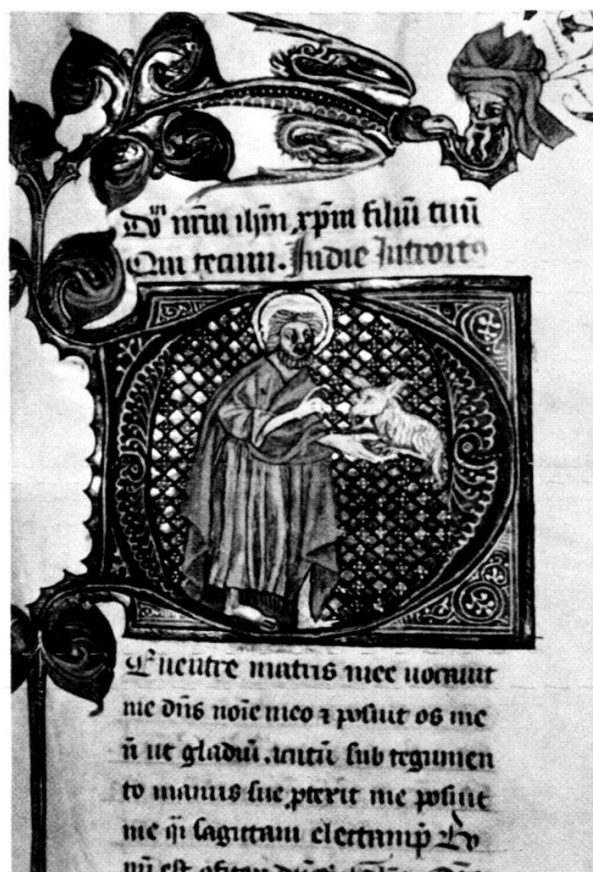 Dn̄ nr̄m ih̄m xp̄m filiū tuū
Qui tecum. In die Introitꝰ
E uentre matris mee uocauit
me dn̄s noīe meo ⁊ posuit os me
ū ut gladiū. acutū sub tegumen
to manus sue ꝓtexit me posuit
me q̄i sagittam electam p̄ Bo
nū est